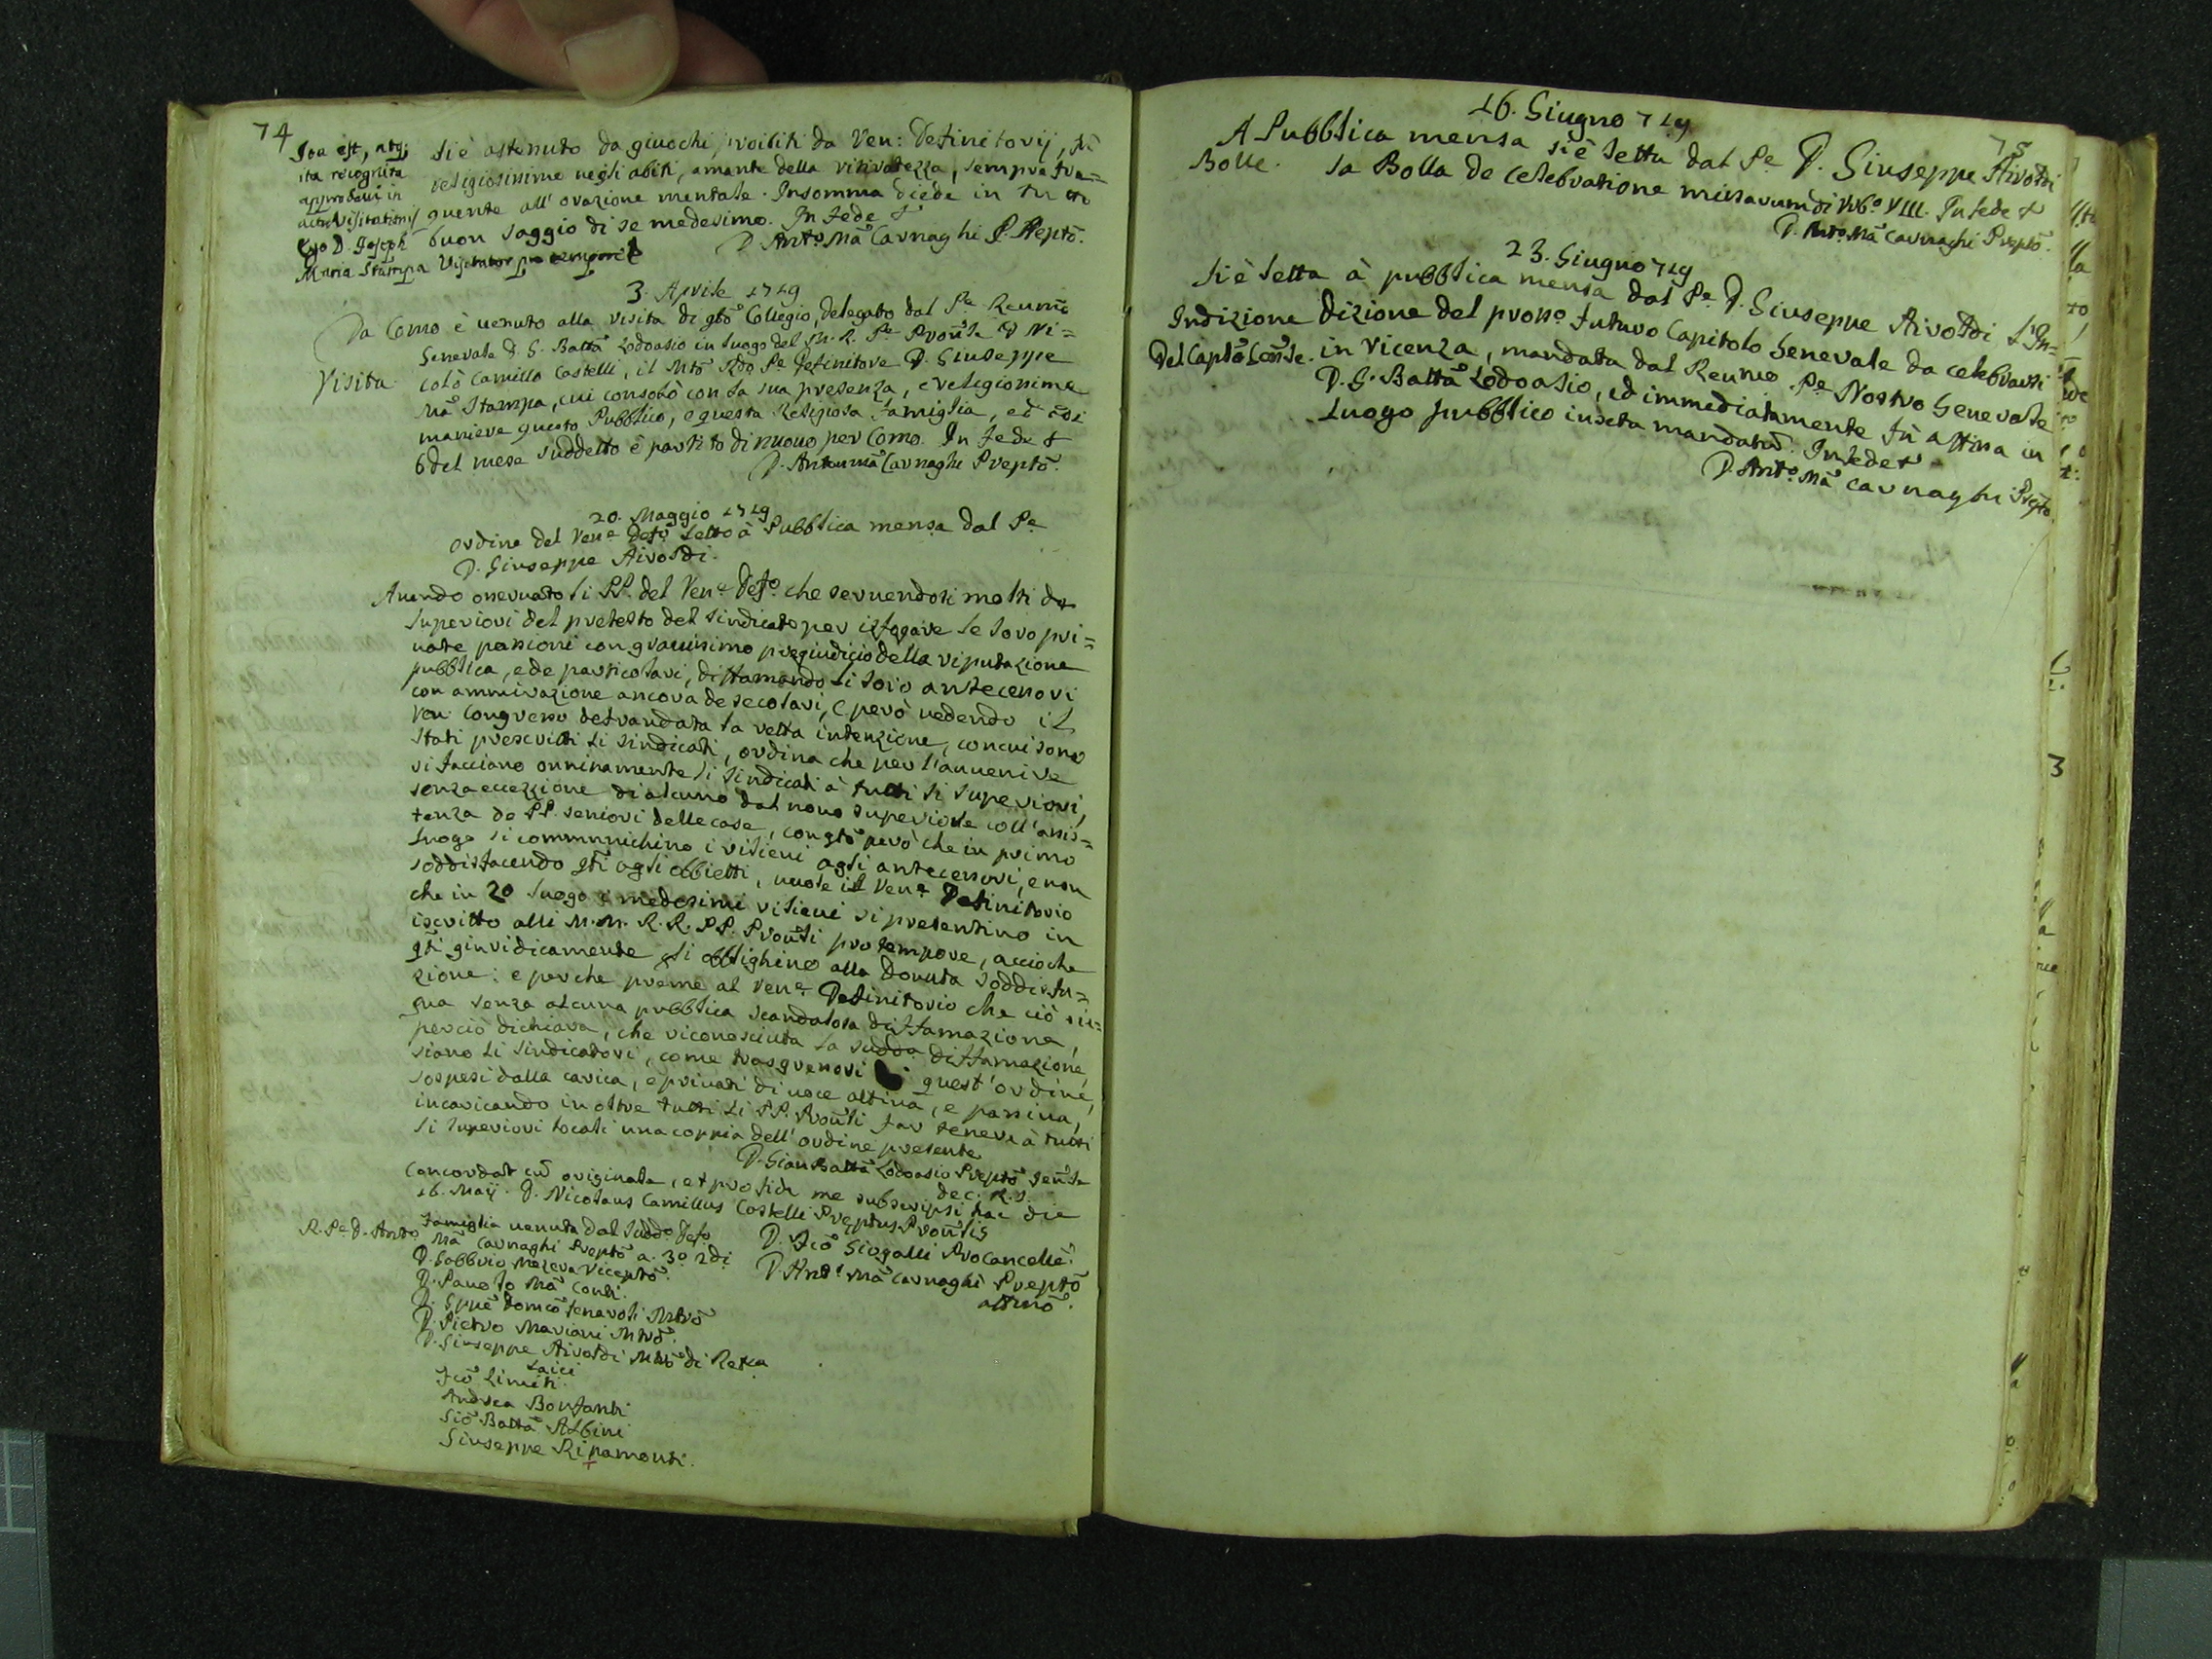 74
Ita est, atq;
ita recognita
approbaui in
actu Visitationis
Ego D. Joseph
Maria Stampa Visitator pro tempore
si è astenuto da giuochi proibiti da Ven: Definitorij, fù
religiosissime negli abiti, amante della ritiratezza, sempre fre=
quente all' orazione mentale. Insomma diede in tutto
buon saggio di se medesimo. In fede &
D. Anto. Mã Carnaghi P. Preptõ.
3. Aprile 1719
Visita
Da Como è uenuto alla visita di qtõ Collegio, delegato dal Pe. Reumõ
Generale D. G. Battã Lodoasio in luogo del M. R. Pe. Proule D. Ni=
colò Camillo Castelli, il Mtõ Rdo Pe Definitore D. Giuseppe
Mã Stampa, cui consolò con la sua presenza, e religiosime
maniere questo Pubblico, e questa Religiosa famiglia, ed oggi
6 del mese suddetto è partito di nuouo per Como. In fede &
D. Anton mã Carnaghi Preptõ.
20. Maggio 1719
Ordine del Vene. Defo. Letto à Pubblica mensa dal Pe.
D. Giuseppe Airoldi.
Auendo osseruato li PP. del Vene. Defo. che seruendosi molti de
Superiori del pretesto del sindicato per isfogare le loro pri=
uate passioni con grauissimo pregiudicio della riputazione
pubblica, e de particolari, diffamando li loro antecessori
con ammirazione ancora de secolari, e però uedendo il
Ven. Congresso defraudata la retta intenzione, con cui sono
stati prescritti li sindicati, ordina che per l'auuenire
si facciano onninamente li sindicati à tutti li superiori,
senza eccezzione di alcuno dal nouo superiore coll' assis=
tenza de PP. seniori delle case, con qtõ però che in primo
luogo si communichino i rilieui agli antecessori, e non
soddisfacendo qti agli obbietti, uuole il Vene. Definitorio
che in 20 luogo i medesimi rilieui si presentino in
iscritto alli M. M. R. R. PP. Prouli pro tempore, accioche
qti giuridicamente gli obblighino alla douuta soddisfa=
zione: e perche preme al Vene. Definitorio che ciò sie=
gua senza alcuna pubblica scandalosa diffamazione,
perciò dichiara, che riconosciuta la sudda diffamazione,
siano li sindicatori, come trasgressori di quest' ordine,
sospesi dalla carica, e priuati di uoce attiua, e passiua,
incaricando in oltre tutti li PP. Prouli far tenere à tutti
li superiori locali una coppia dell' ordine presente
D. Gian Battã Lodoasio Preptõ Genle
dec: R. S.
Concordat cũ originale, et pro fide me subscripsi hac die
16. Maij. D. Nicolaus Camillus Castelli Preptus Proulis
Famiglia uenuta dal suddo. Defo.
R. Pe D. Anto. Mã Carnaghi Preptõ a. 3o. 2di
D. Gabbrio Mezera Viceptõ.
D. Pauolo Mã Conti.
D. Gpuẽ Domcõ fenaroli Mtrõ
D. Pietro Mariani Mtrõ.
D. Giuseppe Airoldi Mtrõ di Retca
D. Fcõ Giogalli Procancellẽ.
D. Anto. Mã Carnaghi Preptõ
attuõ.
Laici
Fcõ Limiti.
Andrea Bonfanti
Giõ Battã Albini
Giuseppe Ripamonti.
75
16. Giugno 719
Bolle.
A Pubblica mensa si è letta dal Pe. D. Giuseppe Airoldi
la Bolla de Celebratione missarum di Urbo. VIII. In fede &
D. Anto. Mã Carnaghi Preptõ.
23. Giugno 719
Indizione
del Captõ Genle.
Si è letta à pubblica mensa dal Pe. D. Giuseppe Airoldi l'In=
dizione del prosso. futuro Capitolo Generale da celebrarsi
in Vicenza, mandata dal Reumo Pe. Nostro Generale
D. G. Battã Lodoasio, ed immediatamente fù affissa in
Luogo pubblico iuxta mandatũ. In fede &
D. Anto. Mã Carnaghi Preptõ.